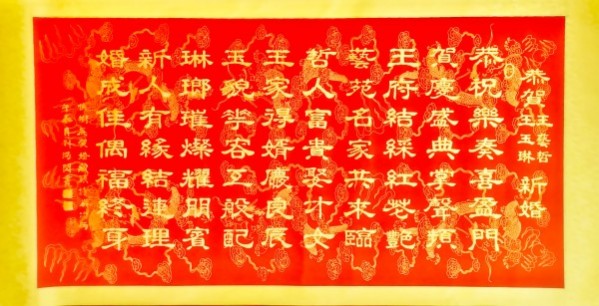 恭賀 王藝哲 王玉琳 新婚
恭祝樂奏喜盈門
賀慶盛典掌聲頻
王府結綵紅花艷
藝苑名家共來臨
哲人富貴娶才女
王家得婿慶良辰
玉貌華容互般配
琳瑯璀燦耀朋賓
新人有緣結連理
婚成佳偶福終身